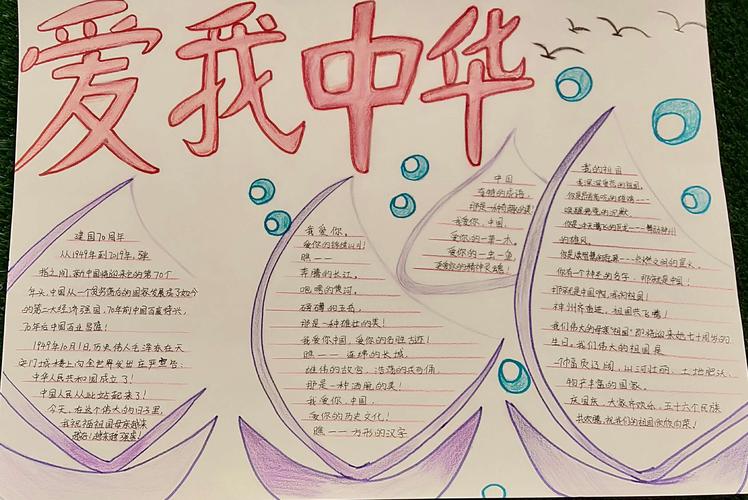 爱我中华
建国70周年
从1949年到2019年,弹
指之间,新中国将迎来它的第70个
年头,中国从一个贫穷落后的国家发展成了如今
的第二大经济强国,70年前中国百废待兴,
70年后中国百业昌盛!
1949年10月1日,历史伟人毛泽东在天
安门城楼上向全世界发出庄严宣告:
中华人民共和国成立了!
中国人民从此站起来了!
今天,在这个伟大的日子里,
我祝福祖国母亲越来
越好!越来越强盛!
我爱你,
爱你的锦绣山川!
瞧——
奔腾的长江,
咆哮的黄河,
磅礴的五岳,
那是一种雄壮的美!
我爱你中国,爱你的名胜古迹!
瞧——连绵的长城,
雄伟的故宫,浩荡的兵马俑,
那是一种洒脱的美!
我爱你,中国,
爱你的历史文化!
瞧——方形的汉字
中国
奇特的成语,
那是一种奇趣的美!
我爱你,中国,
爱你的一草一木,
爱你的一虫一鱼,
更爱你的精神灵魂!
我的祖国
我深深爱恋的祖国,
你是昂首高吭的雄鸡——
唤醒黎明的沉默,
你是冲天腾飞的巨龙——舞动神州
的雄风,
你有一个神圣的名字,那就是中国!
那就是中国啊,我的祖国!
神州齐奋进,祖国共飞腾!
我们伟大的母亲"祖国"即将迎来她七十周岁的
生日。我们伟大的祖国是
一个幅员辽阔,山河壮丽,土地肥沃,
物产丰富的国家。
庆国庆,大家齐欢乐,五十六个民族
共欢腾,祝我们的祖国欣欣向荣!